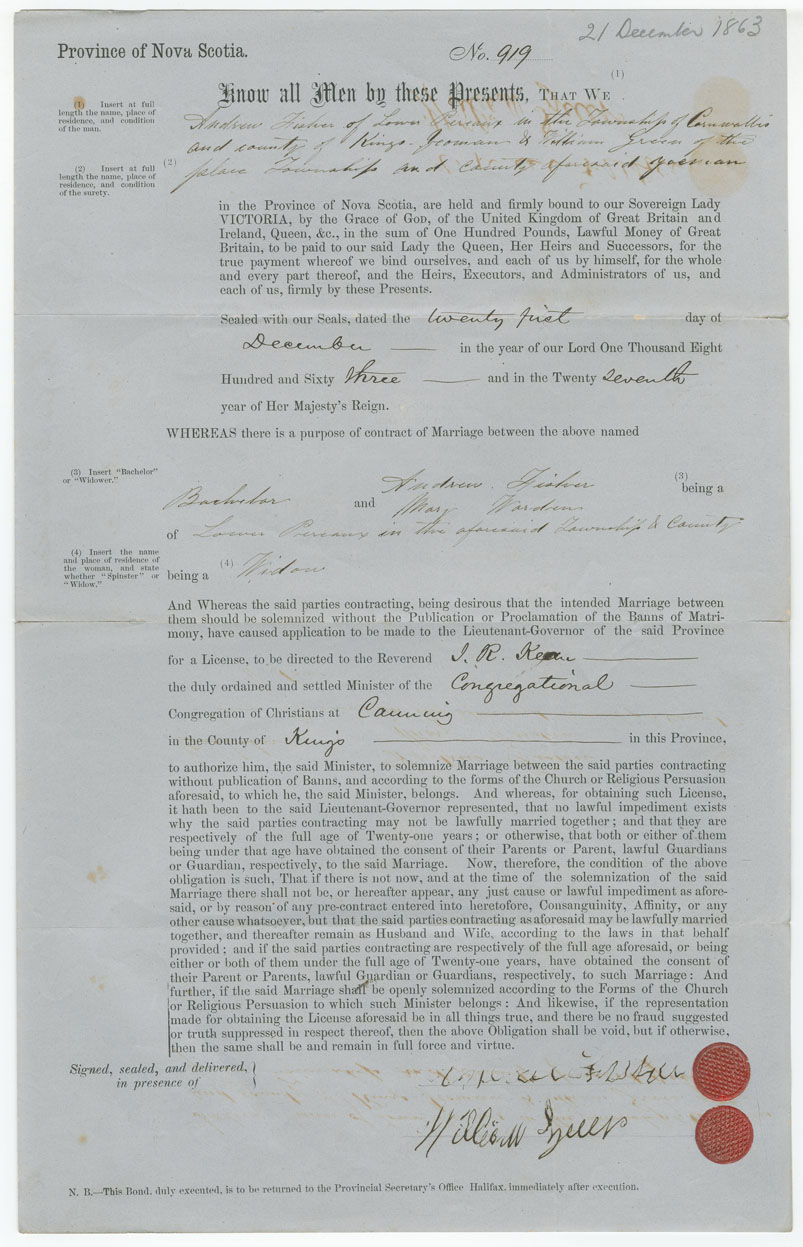 21 December 1863
Province of Nova Scotia.
No. 919
(1)
Know all Men by these Presents, THAT WE
(1) Insert at full
length the name, place of
residence, and condition
of the man.
Andrew Fisher of Lower Pereaux in the Township of Cornwallis
and county of Kings. Yeoman & William Green of the
(2)
place Township and County aforesaid yeoman
(2) Insert at full
length the name, place of
residence, and condition
of the surety.
in the Province of Nova Scotia, are held and firmly bound to our Sovereign Lady
VICTORIA, by the Grace of GOD, of the United Kingdom of Great Britain and
Ireland, Queen, &c., in the sum of One Hundred Pounds, Lawful Money of Great
Britain, to be paid to our said Lady the Queen, Her Heirs and Successors, for the
true payment whereof we bind ourselves, and each of us by himself, for the whole
and every part thereof, and the Heirs, Executors, and Administrators of us, and
each of us, firmly by these Presents.
Sealed with our Seals, dated the twenty first day of
December in the year of our Lord One Thousand Eight
Hundred and Sixty three and in the Twenty seventh
year of Her Majesty's Reign.
WHEREAS there is a purpose of contract of Marriage between the above named
(3) Insert "Bachelor"
or "Widower."
Andrew Fisher (3) being a
Bachelor and Mary Worden
of Lower Pereaux in the aforesaid Township & County
(4) Insert the name
and place of residence of
the woman, and state
whether "Spinster" or
"Widow."
being a (4) Widow
And Whereas the said parties contracting, being desirous that the intended Marriage between
them should be solemnized without the Publication or Proclamation of the Banns of Matri-
mony, have caused application to be made to the Lieutenant-Governor of the said Province
for a License, to be directed to the Reverend J. R. Kean
the duly ordained and settled Minister of the Congregational
Congregation of Christians at Canning
in the County of Kings in this Province,
to authorize him, the said Minister, to solemnize Marriage between the said parties contracting
without publication of Banns, and according to the forms of the Church or Religious Persuasion
aforesaid, to which he, the said Minister, belongs. And whereas, for obtaining such License,
it hath been to the said Lieutenant-Governor represented, that no lawful impediment exists
why the said parties contracting may not be lawfully married together; and that they are
respectively of the full age of Twenty-one years; or otherwise, that both or either of them
being under that age have obtained the consent of their Parents or Parent, lawful Guardians
or Guardian, respectively, to the said Marriage. Now, therefore, the condition of the above
obligation is such, That if there is not now, and at the time of the solemnization of the said
Marriage there shall not be, or hereafter appear, any just cause or lawful impediment as afore-
said, or by reason of any pre-contract entered into heretofore, Consanguinity, Affinity, or any
other cause whatsoever, but that the said parties contracting as aforesaid may be lawfully married
together, and thereafter remain as Husband and Wife, according to the laws in that behalf
provided; and if the said parties contracting are respectively of the full age aforesaid, or being
either or both of them under the full age of Twenty-one years, have obtained the consent of
their Parent or Parents, lawful Guardian or Guardians, respectively, to such Marriage: And
further, if the said Marriage shall be openly solemnized according to the Forms of the Church
or Religious Persuasion to which such Minister belongs: And likewise, if the representation
made for obtaining the License aforesaid be in all things true, and there be no fraud suggested
or truth suppressed in respect thereof, then the above Obligation shall be void, but if otherwise,
then the same shall be and remain in full force and virtue.
Signed, sealed, and delivered,
in presence of
William
N. B.—This Bond, duly executed, is to be returned to the Provincial Secretary's Office Halifax, immediately after execution.